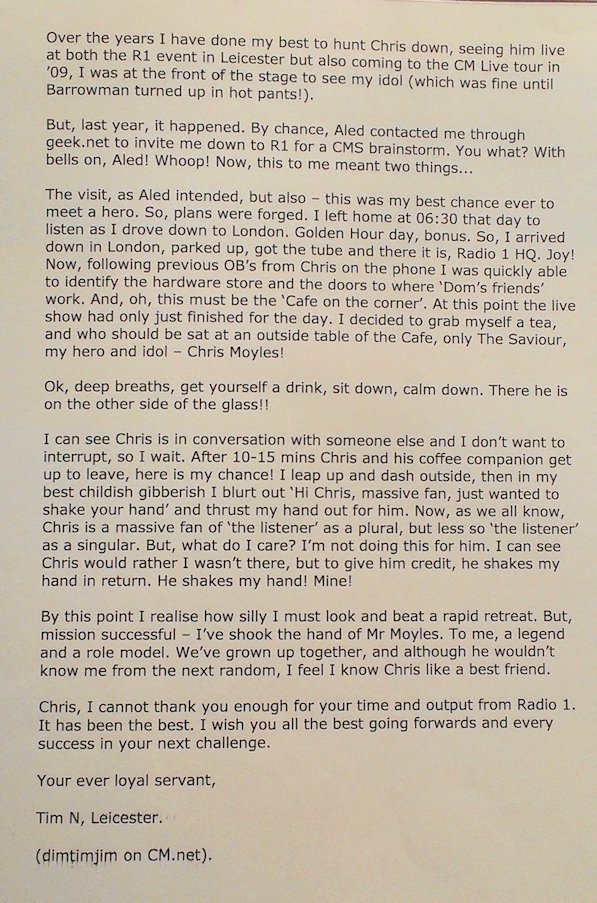 Over the years I have done my best to hunt Chris down, seeing him live
at both the R1 event in Leicester but also coming to the CM Live tour in
'09, I was at the front of the stage to see my idol (which was fine until
Barrowman turned up in hot pants!).
But, last year, it happened. By chance, Aled contacted me through
geek.net to invite me down to R1 for a CMS brainstorm. You what? With
bells on, Aled! Whoop! Now, this to me meant two things...
The visit, as Aled intended, but also – this was my best chance ever to
meet a hero. So, plans were forged. I left home at 06:30 that day to
listen as I drove down to London. Golden Hour day, bonus. So, I arrived
down in London, parked up, got the tube and there it is, Radio 1 HQ. Joy!
Now, following previous OB's from Chris on the phone I was quickly able
to identify the hardware store and the doors to where 'Dom's friends'
work. And, oh, this must be the 'Cafe on the corner'. At this point the live
show had only just finished for the day. I decided to grab myself a tea,
and who should be sat at an outside table of the Cafe, only The Saviour,
my hero and idol – Chris Moyles!
Ok, deep breaths, get yourself a drink, sit down, calm down. There he is
on the other side of the glass!!
I can see Chris is in conversation with someone else and I don't want to
interrupt, so I wait. After 10-15 mins Chris and his coffee companion get
up to leave, here is my chance! I leap up and dash outside, then in my
best childish gibberish I blurt out 'Hi Chris, massive fan, just wanted to
shake your hand' and thrust my hand out for him. Now, as we all know,
Chris is a massive fan of 'the listener' as a plural, but less so 'the listener'
as a singular. But, what do I care? I'm not doing this for him. I can see
Chris would rather I wasn't there, but to give him credit, he shakes my
hand in return. He shakes my hand! Mine!
By this point I realise how silly I must look and beat a rapid retreat. But,
mission successful – I've shook the hand of Mr Moyles. To me, a legend
and a role model. We've grown up together, and although he wouldn't
know me from the next random, I feel I know Chris like a best friend.
Chris, I cannot thank you enough for your time and output from Radio 1.
It has been the best. I wish you all the best going forwards and every
success in your next challenge.
Your ever loyal servant,
Tim N, Leicester.
(dimtimjim on CM.net).